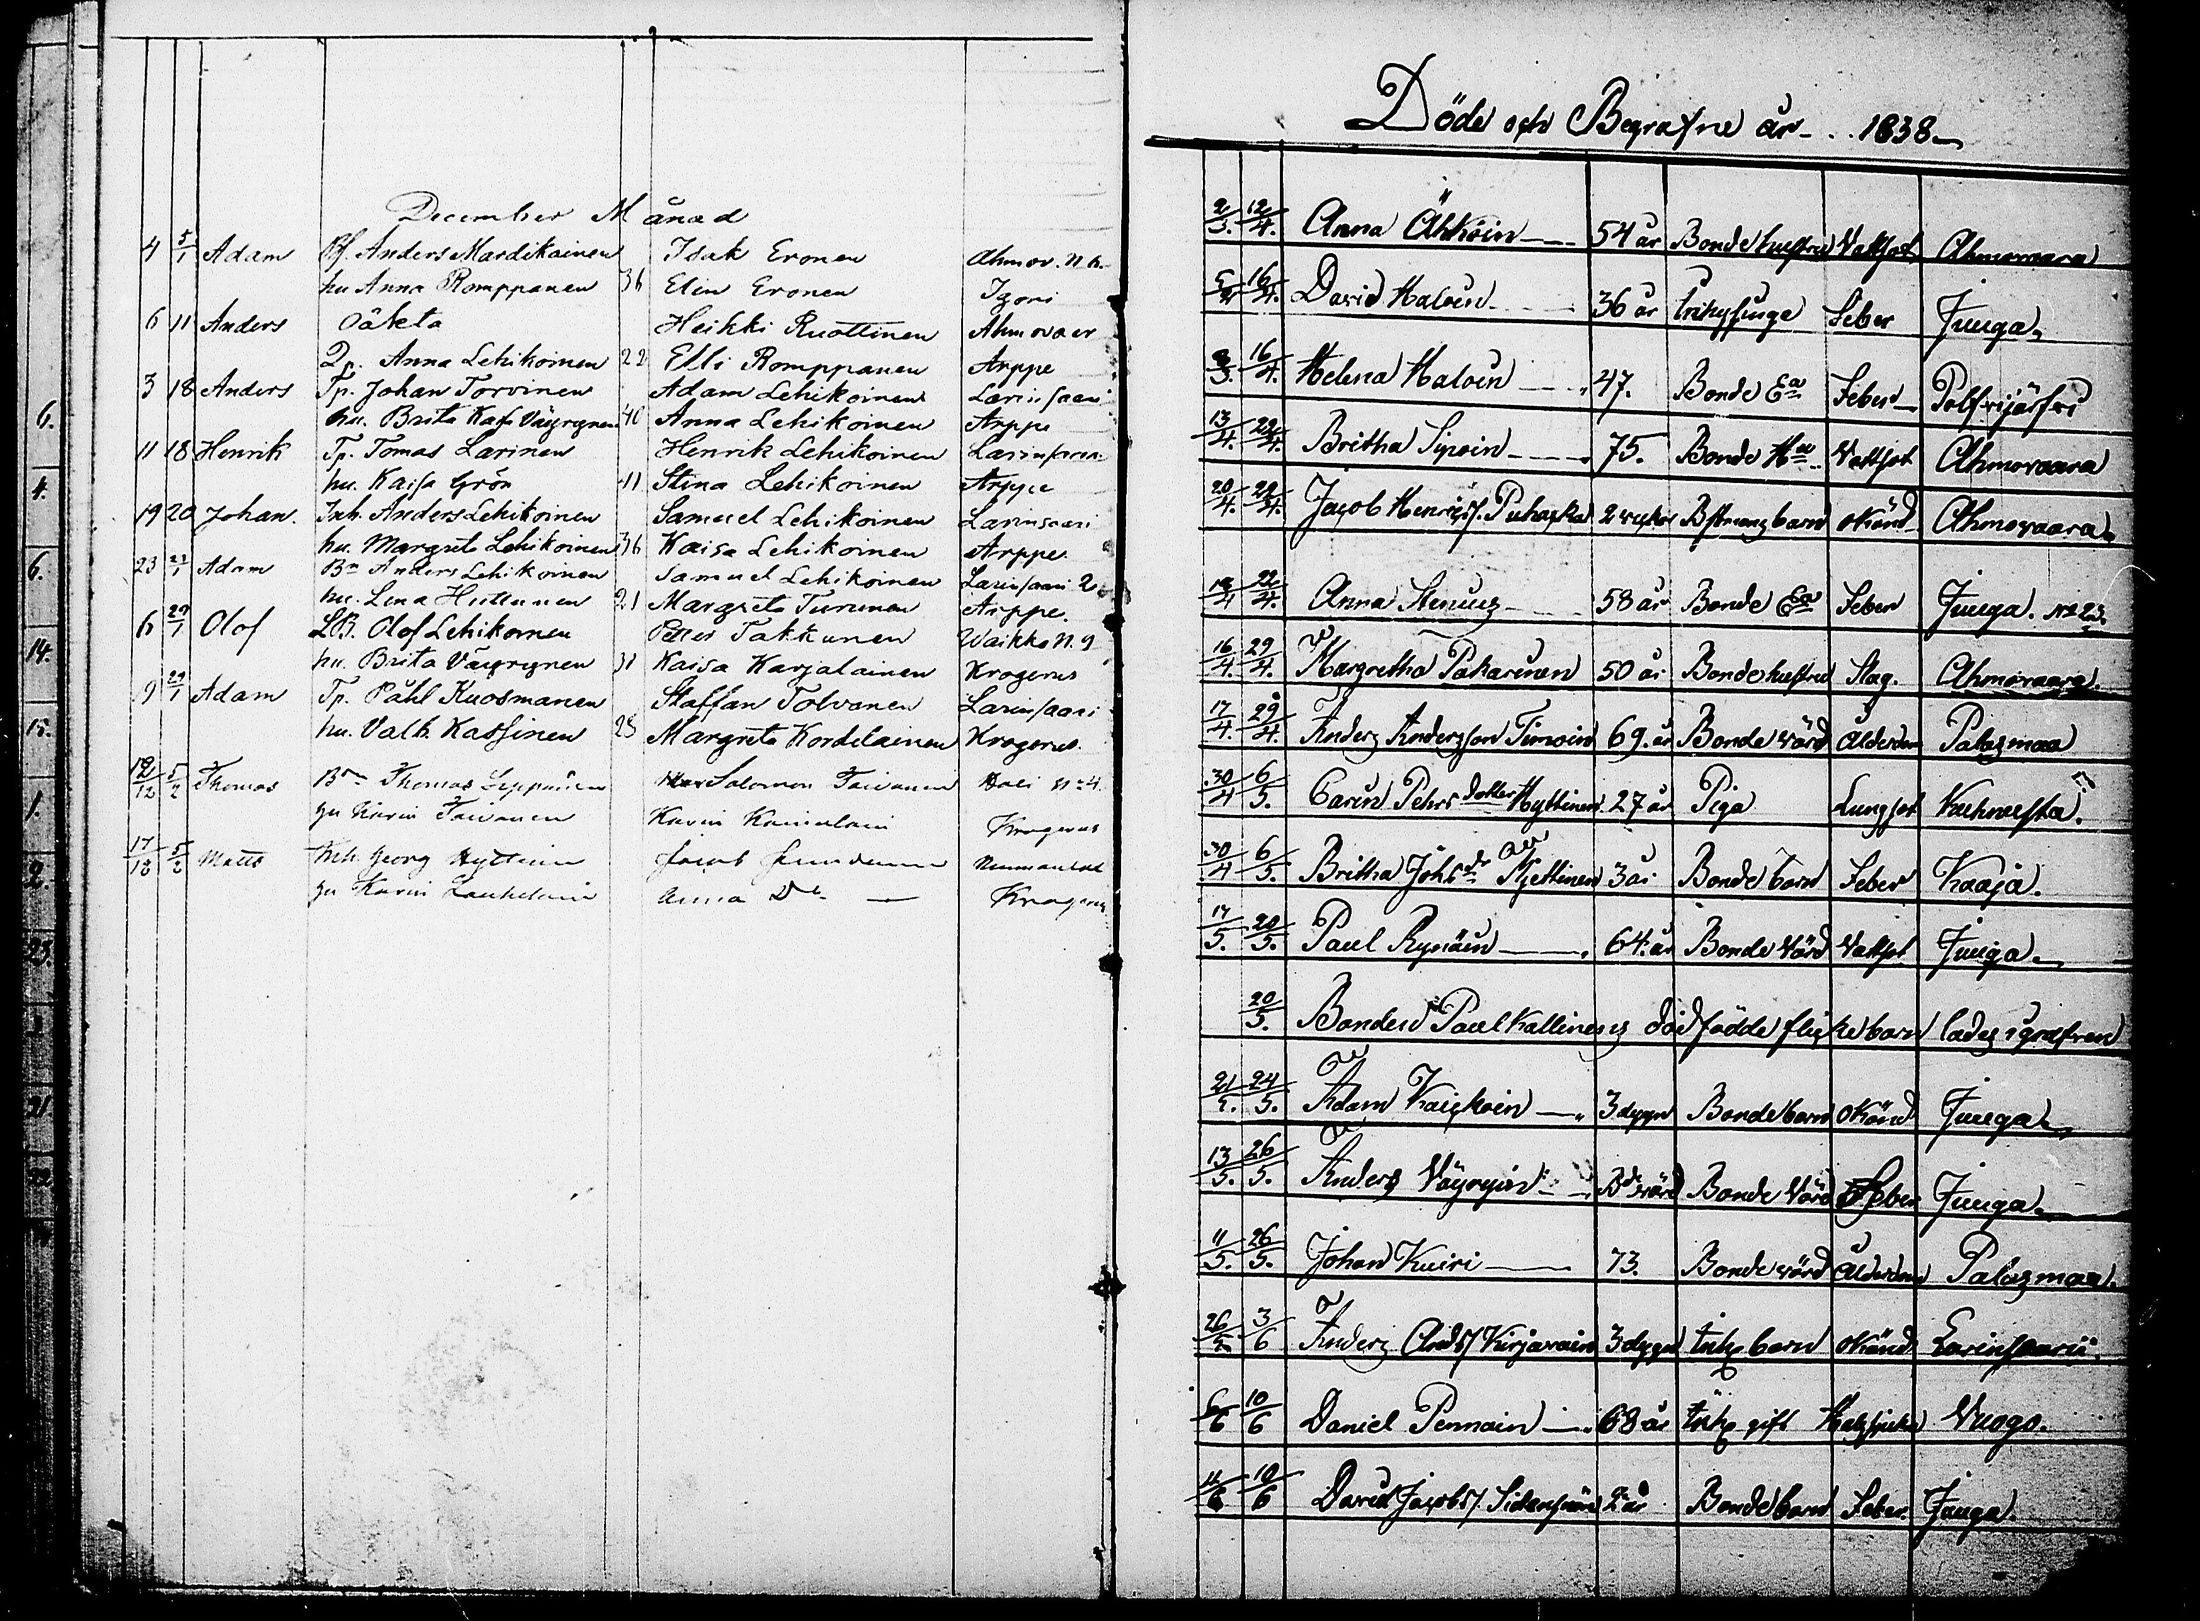 December Månad
4 5/1 Adam Bf. Anders Mardikainen Isak Eronen Ahmov. N 6.
hu Anna Romppanen 36 Elin Eronen Igoni
6 11 Anders Oäkta Heikki Ruottinen Ahmovaar
Qp. Anna Lehikoinen 22 Elli Romppanen Arppe
3 18 Anders Tp. Johan Torvinen Adam Lehikoinen Larinsaari
hu. Brita Kajs Väyrynen 40 Anna Lehikoinen Arppe
11 18 Henrik Tp. Tomas Larinen Henrik Lehikoinen Larinsaari
hu. Kaisa Grön 41 Stina Lehikoinen Arppe
19 20 Johan. Inh. Anders Lehikoinen Samuel Lehikoinen Larinsaari
hu. Margreta Lehikoinen 36 Kaisa Lehikoinen Arppe.
23 21/1 Adam Bn Anders Lehikoinen Samuel Lehikoinen Larinsaari 2
hu. Lena Huttunen 21 Margreta Turunen Arppe.
6 29/1 Olof LB. Olof Lehikoinen Petter Takkunen Waikko N. 9
hu. Brita Väyrynen 31 Kaisa Karjalainen Krogerus
9 29/1 Adam Tp. Påhl Kuosmanen Staffan Tolvanen Larinsaari
hu. Valb. Kassinen 25 Margreta Kordelainen Krogerus.
12/12 5/2 Thomas Bn Thomas Leppänen Salomon Taivanen Hali N:4
hu Karin Taivanen Karin Krogerus
17/12 5/2 Matts Inh. Georg Hyttinen Jacob
hu Karin Anna Do — Krogerus
6.
4.
6.
14.
15.
1.
2.
23.
Döde och Begrafne år . . 1838
2/3. 12/4. Anna Ähköin 54 år Bonde hustru Vattsot Ahmovaara
16/4. David Haloin 36 år Feber Juuga
8/3. 16/4. Helena Haloin 47. Bonde Ea Feber Polfvijärfvi
13/4. 22/4. Britha Sipoin 75. Bonde Vattsot Ahmovaara
20/4. 22/4. Jacob Henrics. Puhacka 2 veckor barn okänd Ahmovaara
18/4 22/4. Anna Stenius 58 år Bonde Ea Feber Juuga. No 23.
16/4. 29/4. Margretha Pakarinen 50 år Bonde hustru Slag. Ahmovaara.
17/4. 29/4. Anders Andersson Timoin 69. år Bonde värd Ålderdom Polosmaa
30/4 6/5. Carin Pehrs dotter Hyttinen 27 år Piga Lungsot Kuhnusta.
30/4 6/5. Britha Johsdr Kjettinen 3 år Bonde barn Feber Kaaja.
17/5. 20/5. Paul Rynäin 64. år Bonde Värd Vattsot Juuga
20/5. Bonden Paul Kallinens död födde flicke barn lades i grafven
21/5. 24/5. Adam Kaickoin 3 dygn Bonde barn okänd Juuga
13/5. 26/5. Anders Väyryin Bdevärd Bonde Värd Feber Juuga
11/5. 26/5. Johan Kuiri 73. Bonde värd Ålderdom Polosmaa.
26/5 3/6 Anders Ands. Kirjavain 3 dygn Inhs barn okänd Larinsaari.
6/6 10/6 Daniel Pennain 68 år Inhs gift Halssjuka Vuogo.
4/6 10/6 David Jacobs. 2 år Bonde barn Feber. Juuga